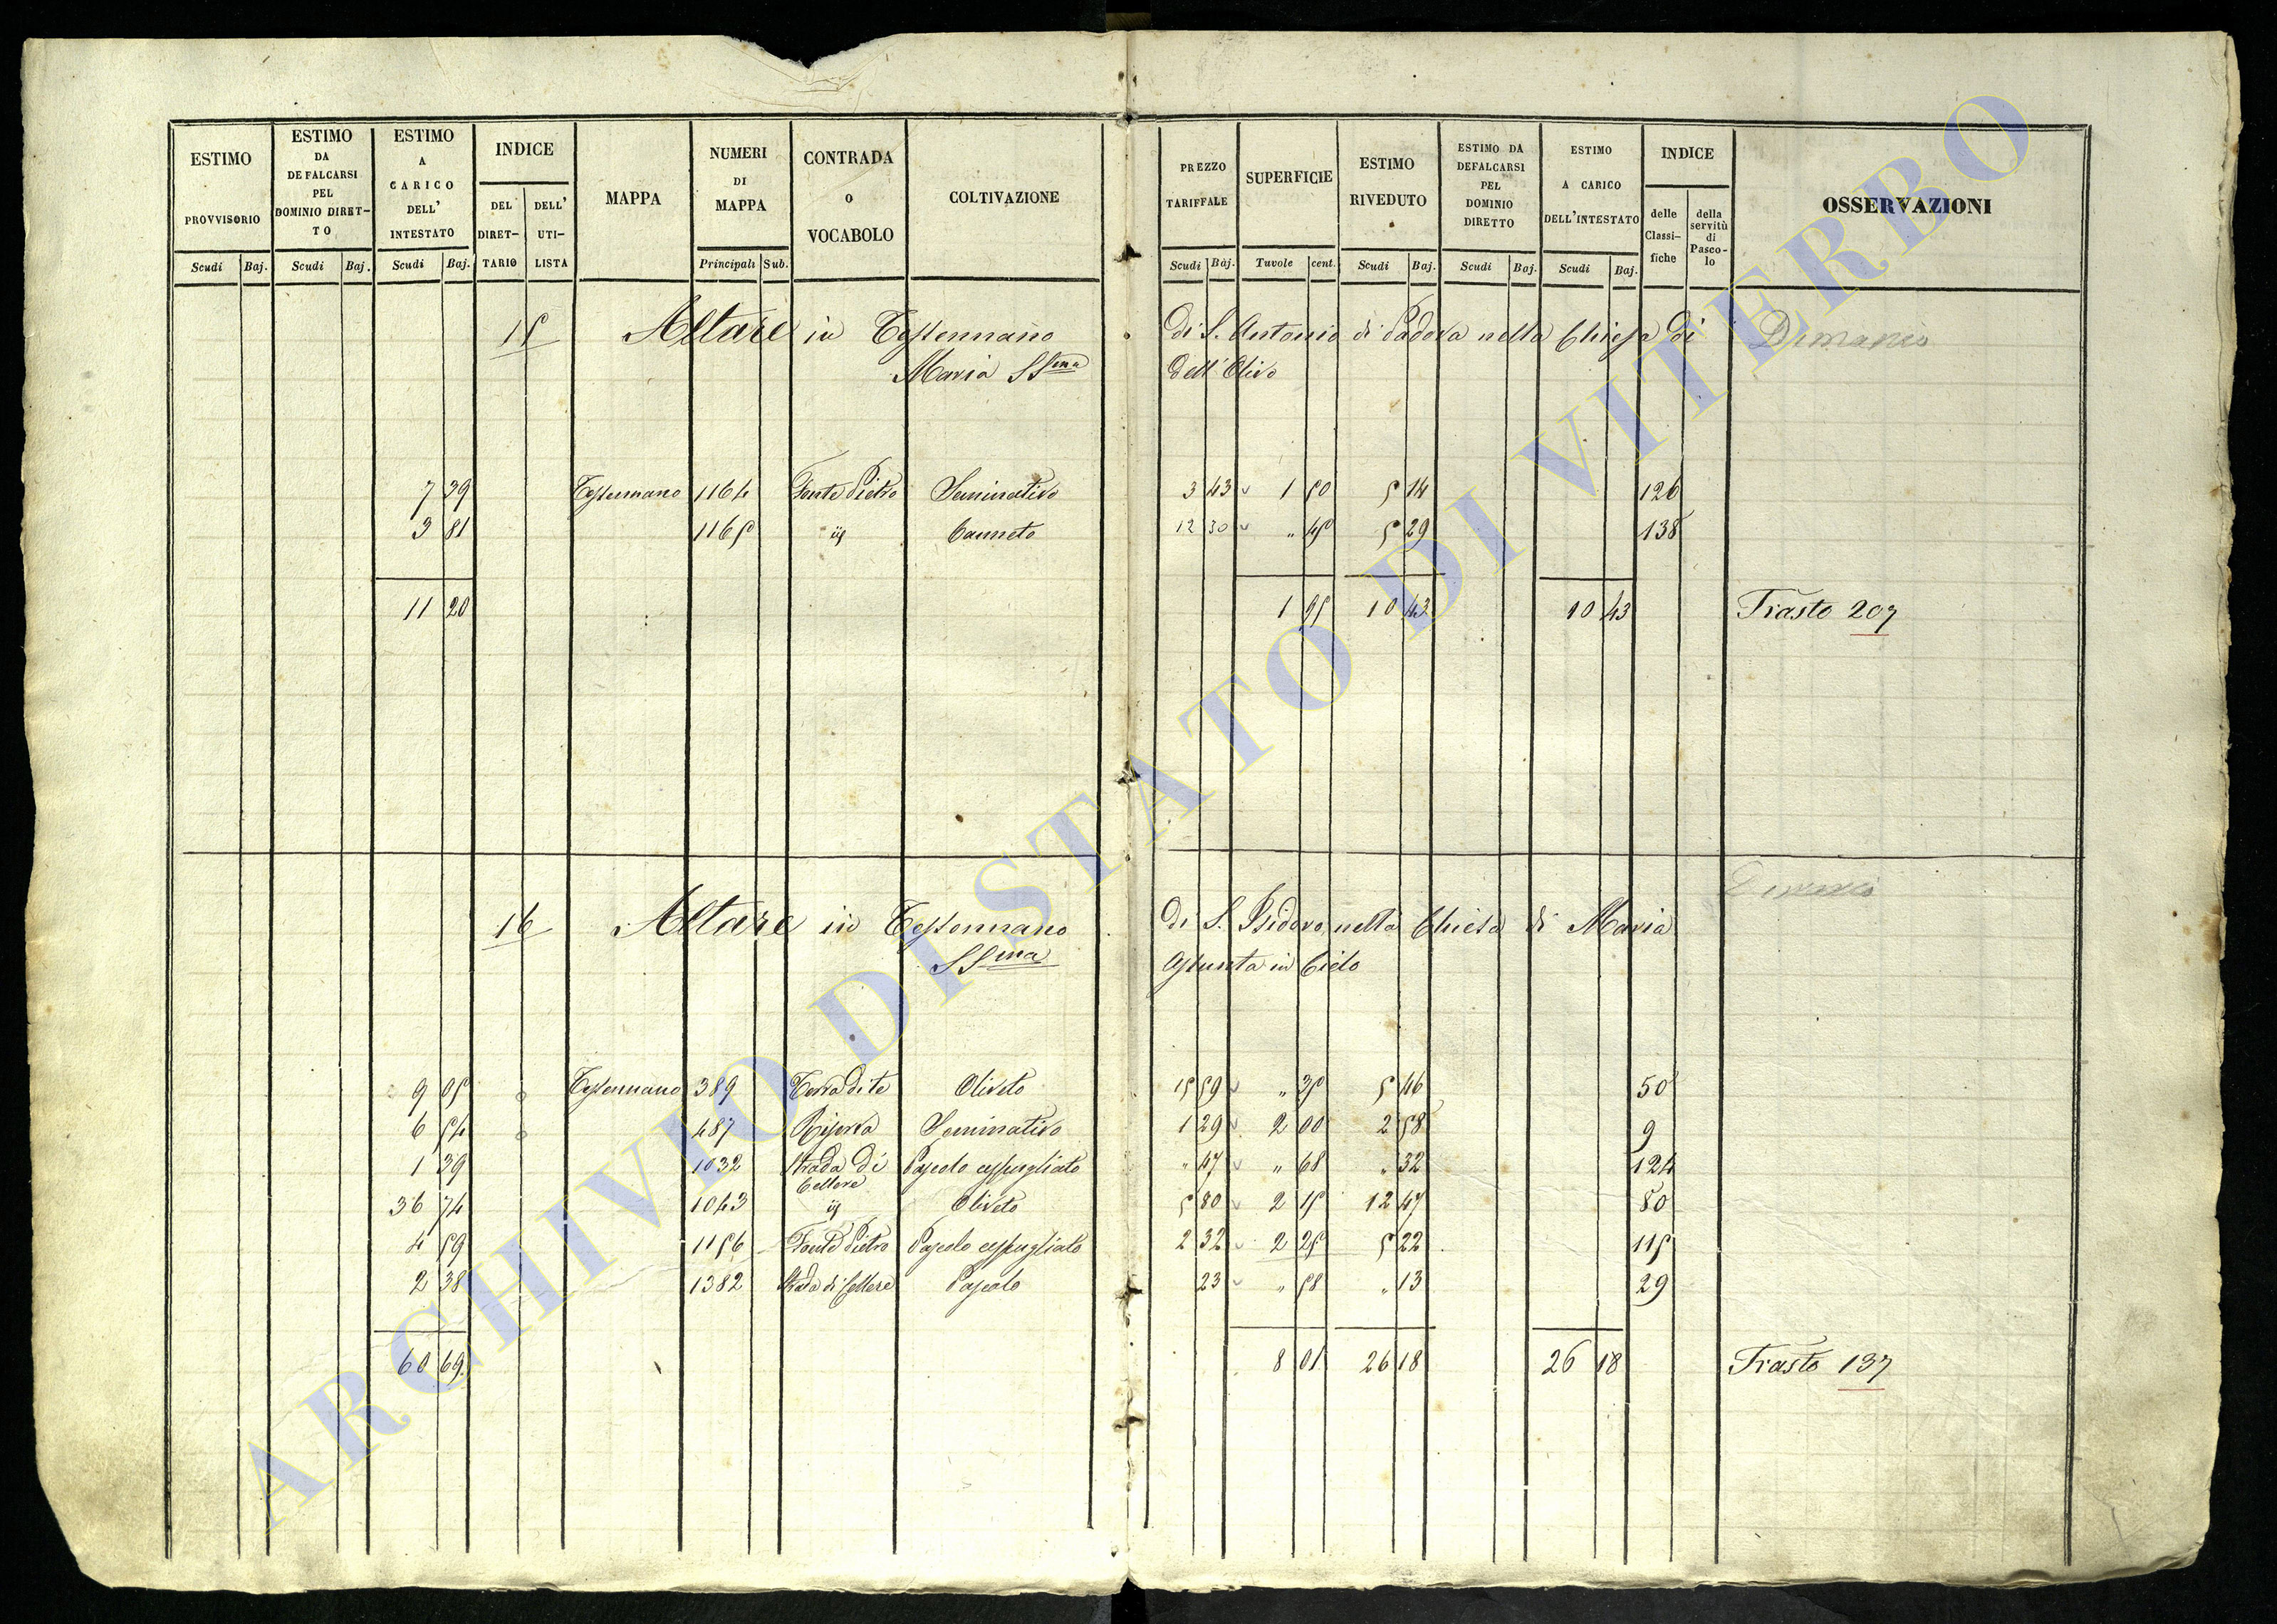 ESTIMO PROVVISORIO
Scudi Baj.
ESTIMO DA DEFALCARSI PEL DOMINIO DIRET-TO
Scudi Baj.
ESTIMO A CARICO DELL' INTESTATO
Scudi Baj.
INDICE
DEL DIRET-TARIO
DELL' UTI-LISTA
MAPPA
NUMERI DI MAPPA
Principali Sub.
CONTRADA o VOCABOLO
COLTIVAZIONE
PREZZO TARIFFALE
Scudi Baj.
SUPERFICIE
Tavole cent.
ESTIMO RIVEDUTO
Scudi Baj.
ESTIMO DA DEFALCARSI PEL DOMINIO DIRETTO
Scudi Baj.
ESTIMO A CARICO DELL'INTESTATO
Scudi Baj.
INDICE
delle Classi-fiche
della servitù di Pasco-lo
OSSERVAZIONI
15 Altare in Tessennano di S. Antonio di Padova nella Chiesa di Demanio
Maria SSma dell'Olivo
7 39 Tessennano 1164 Fonte Pietro Seminativo 3 43 1 50 5 14 126
3 81 1165 id Canneto 12 30 " 45 5 29 138
11 20 1 95 10 43 10 43 Trasto 207
16 Altare in Tessennano di S. Isidoro nella Chiesa di Maria Demanio
SSma Assunta in Cielo
9 05 Tessennano 389 Terradite Oliveto 15 59 " 35 5 46 50
6 54 487 Riserva Seminativo 1 29 2 00 2 58 9
1 39 1032 Strada di Cellere Pascolo cespugliato " 47 " 68 " 32 124
36 74 1043 id Oliveto 5 80 2 15 12 47 80
4 59 1156 Fonte Pietro Pascolo cespugliato 2 32 2 25 5 22 115
2 38 1382 Strada di Cellere Pascolo 23 " 58 " 13 29
60 69 8 01 26 18 26 18 Trasto 137
ARCHIVIO DI STATO DI VITERBO